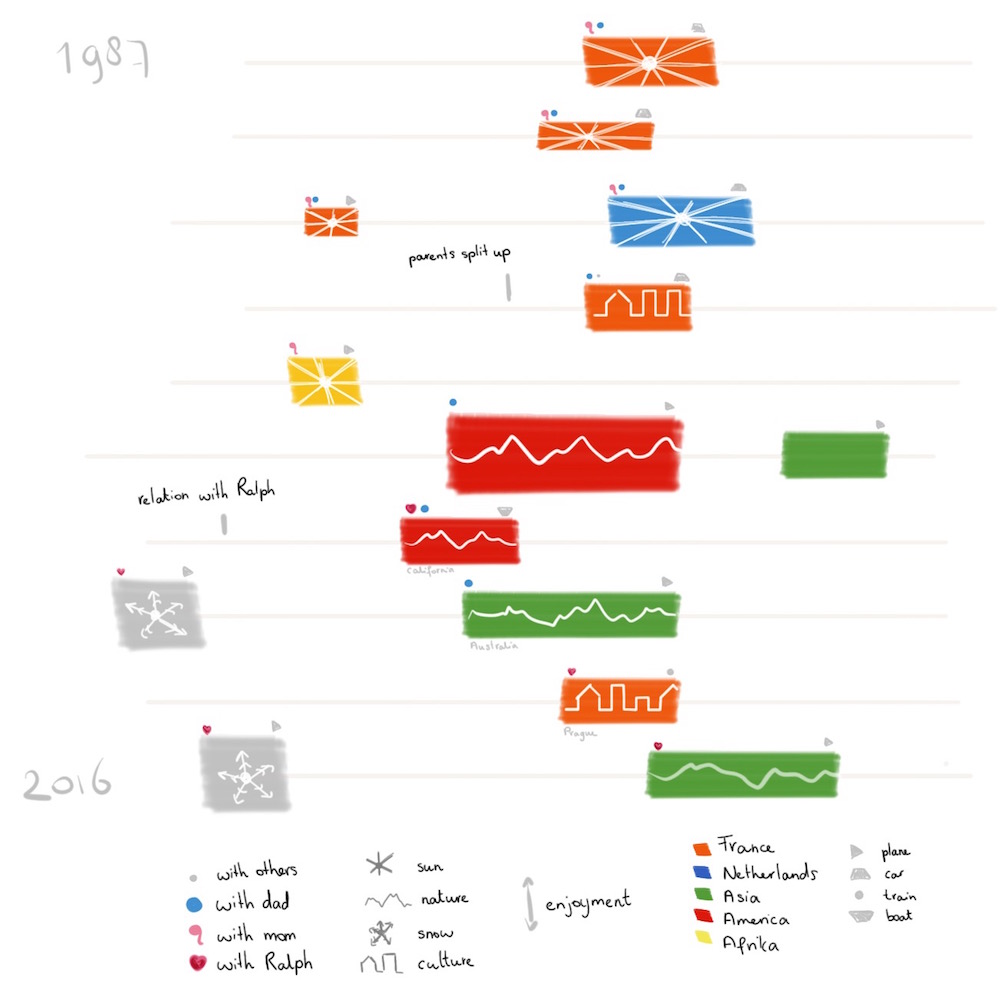 1987
parents split up
relation with Ralph
California
Australia
Prague
2016
with others
with dad
with mom
with Ralph
sun
nature
snow
culture
enjoyment
France
Netherlands
Asia
America
Afrika
plane
car
train
boat